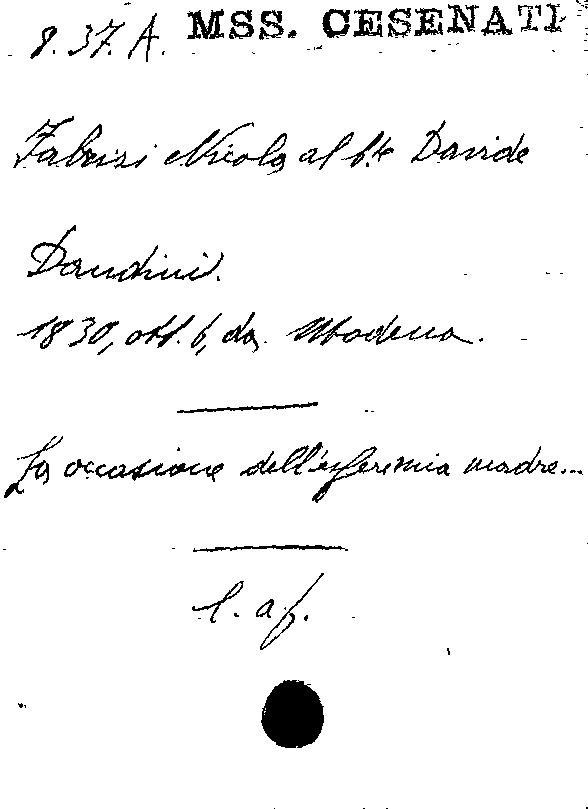 8.37.A. MSS. CESENATI
Fabrizi Nicola al C.te Davide
Dandini.
1830, ott. 6, da Modena.
La occasione dell'inferma madre...
l. af.